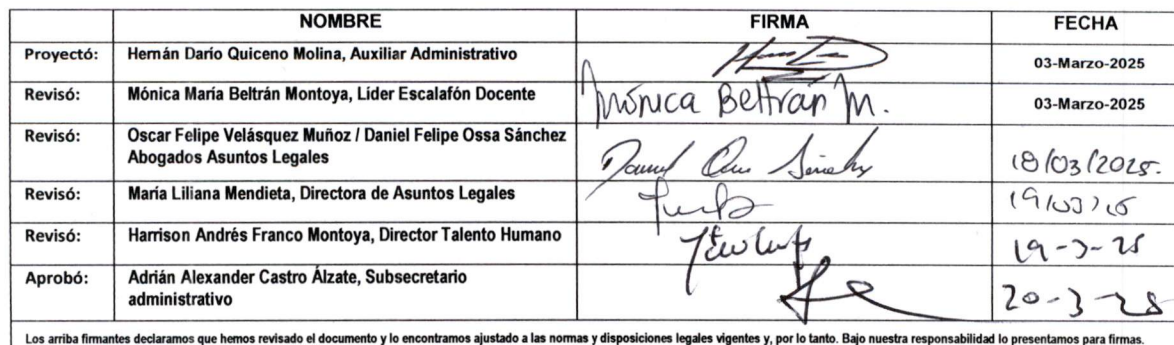 NOMBRE FIRMA FECHA
Proyectó: Hernán Darío Quiceno Molina, Auxiliar Administrativo 03-Marzo-2025
Revisó: Mónica María Beltrán Montoya, Líder Escalafón Docente Mónica Beltrán M. 03-Marzo-2025
Revisó: Oscar Felipe Velásquez Muñoz / Daniel Felipe Ossa Sánchez
Abogados Asuntos Legales Daniel Ossa Sánchez 18/03/2025.
Revisó: María Liliana Mendieta, Directora de Asuntos Legales
Revisó: Harrison Andrés Franco Montoya, Director Talento Humano 19-3-25
Aprobó: Adrián Alexander Castro Álzate, Subsecretario
administrativo 20-3-25
Los arriba firmantes declaramos que hemos revisado el documento y lo encontramos ajustado a las normas y disposiciones legales vigentes y, por lo tanto. Bajo nuestra responsabilidad lo presentamos para firmas.